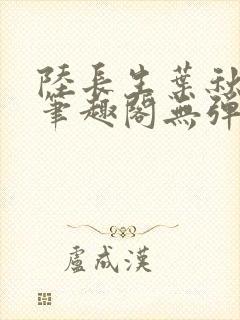 陸長生葉秋
筆趣閣無彈
盧成漢